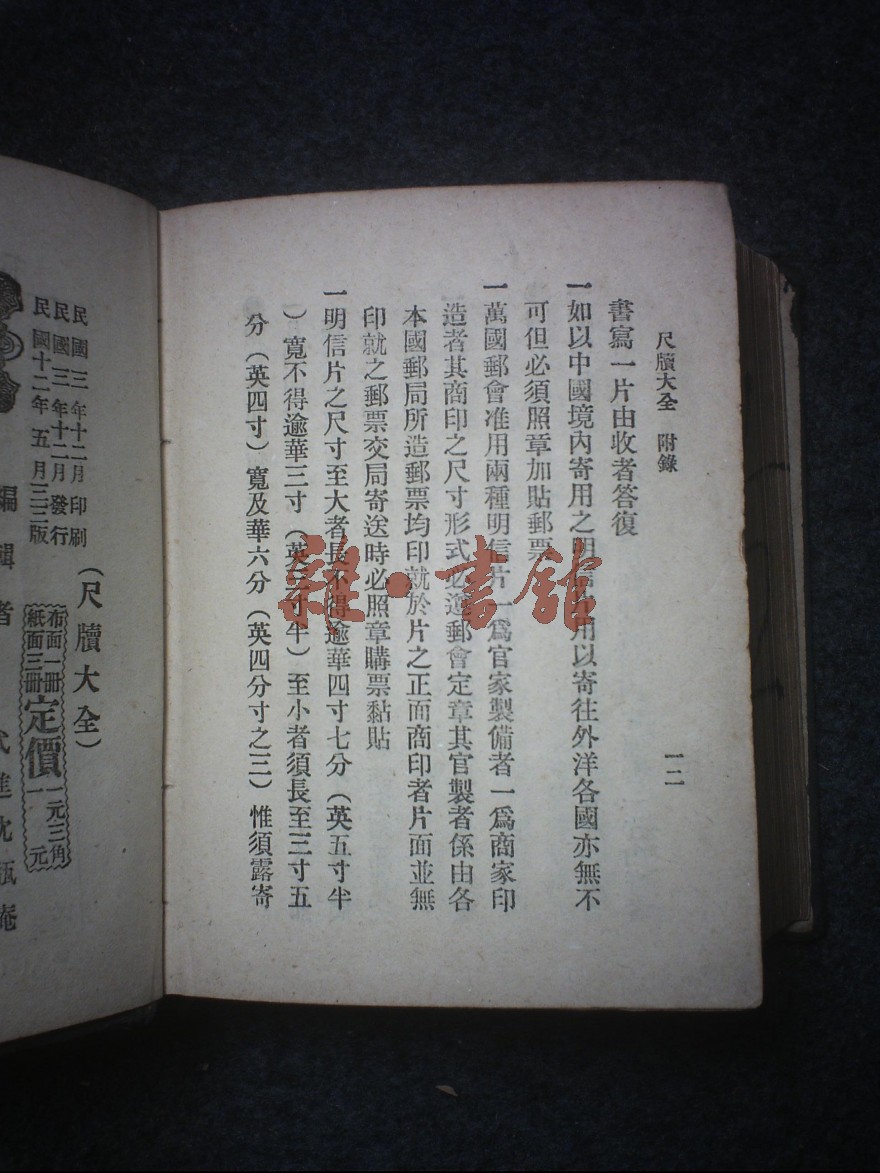 尺牘大全 附錄
一二
書寫一片由收者答復
一如以中國境內寄用之明信片用以寄往外洋各國亦無不
可但必須照章加貼郵票
一萬國郵會准用兩種明信片一爲官家製備者一爲商家印
造者其商印之尺寸形式必遵郵會定章其官製者係由各
本國郵局所造郵票均印就於片之正面商印者片面並無
印就之郵票交局寄送時必照章購票黏貼
一明信片之尺寸至大者長不得逾華四寸七分（英五寸半
）寬不得逾華三寸（英三寸半）至小者須長至三寸五
分（英四寸）寬及華六分（英四分寸之三）惟須露寄
雜·書館
（尺牘大全）
民國三年十二月印刷
民國三年十二月發行
民國十二年五月三三版
布面一冊
紙面三冊
定價
一元三角
一元
編輯者
武進沈瓶庵